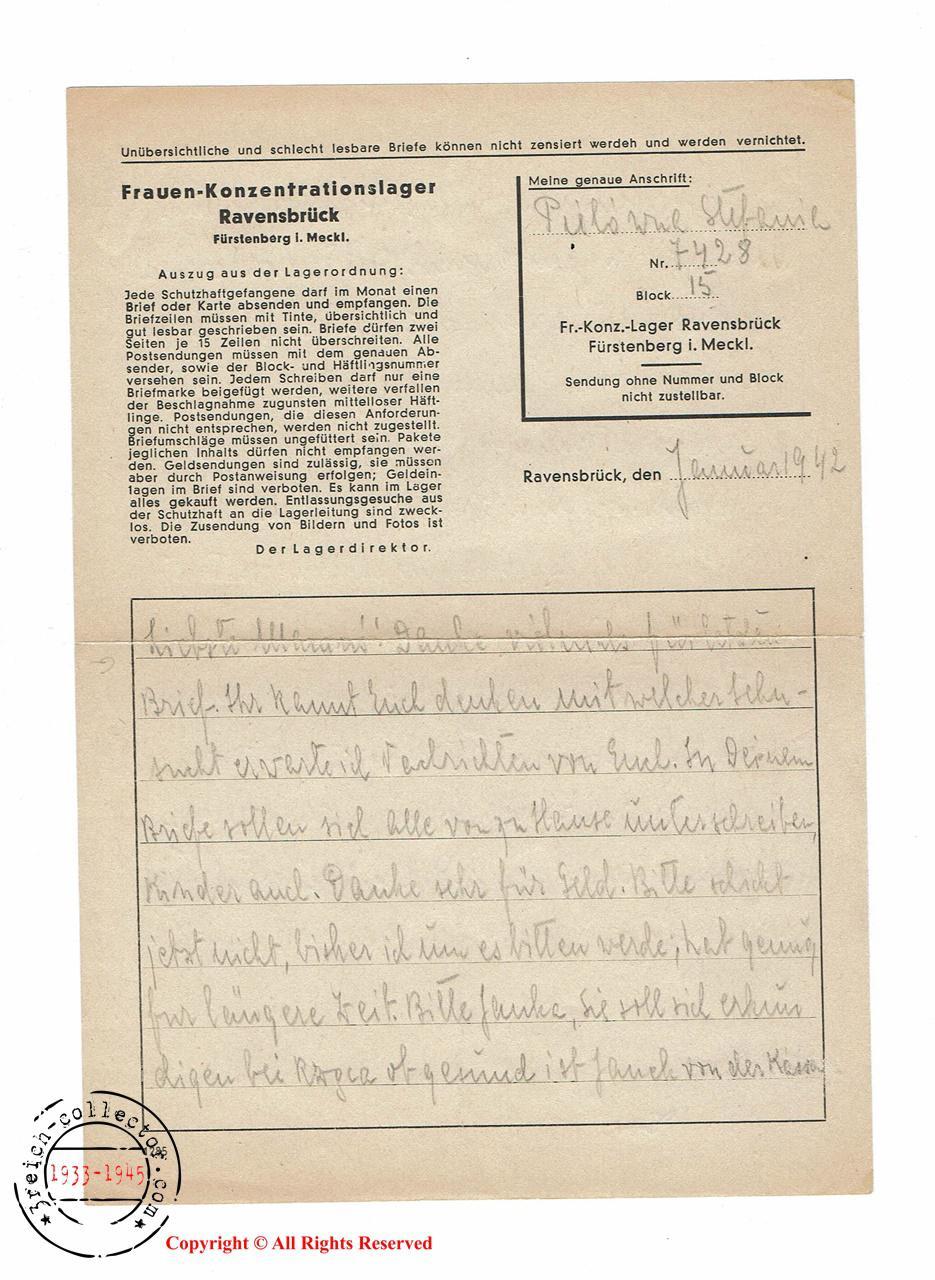 Unübersichtliche und schlecht lesbare Briefe können nicht zensiert werdeh und werden vernichtet.
Frauen-Konzentrationslager
Ravensbrück
Fürstenberg i. Meckl.
Auszug aus der Lagerordnung:
Jede Schutzhaftgefangene darf im Monat einen
Brief oder Karte absenden und empfangen. Die
Briefzeilen müssen mit Tinte, übersichtlich und
gut lesbar geschrieben sein. Briefe dürfen zwei
Seiten je 15 Zeilen nicht überschreiten. Alle
Postsendungen müssen mit dem genauen Ab-
sender, sowie der Block- und Häftlingsnummer
versehen sein. Jedem Schreiben darf nur eine
Briefmarke beigefügt werden, weitere verfallen
der Beschlagnahme zugunsten mittelloser Häft-
linge. Postsendungen, die diesen Anforderun-
gen nicht entsprechen, werden nicht zugestellt.
Briefumschläge müssen ungefüttert sein. Pakete
jeglichen Inhalts dürfen nicht empfangen wer-
den. Geldsendungen sind zulässig, sie müssen
aber durch Postanweisung erfolgen; Geldein-
lagen im Brief sind verboten. Es kann im Lager
alles gekauft werden. Entlassungsgesuche aus
der Schutzhaft an die Lagerleitung sind zweck-
los. Die Zusendung von Bildern und Fotos ist
verboten.
Der Lagerdirektor.
Meine genaue Anschrift:
Stefania
Nr. 7428
Block 15
Fr.-Konz.-Lager Ravensbrück
Fürstenberg i. Meckl.
Sendung ohne Nummer und Block
nicht zustellbar.
Ravensbrück, den Januar 1942
Liebste Danke für letzten
Brief. Ihr kannt Euch denken mit welcher Sehn-
sucht erwarte ich Nachrichten von Euch. In Deinem
Briefe sollen sich alle von zu Hause unterschreiben,
Kinder auch. Danke sehr für Geld. Bitte schickt
jetzt nicht, bisher ich um es bitten werde, hab genug
fur längere Zeit. Bitte Janka, sie soll sich erkun
digen bei ob gesund ist von der
3reich-collector.com
1933-1945
Copyright © All Rights Reserved